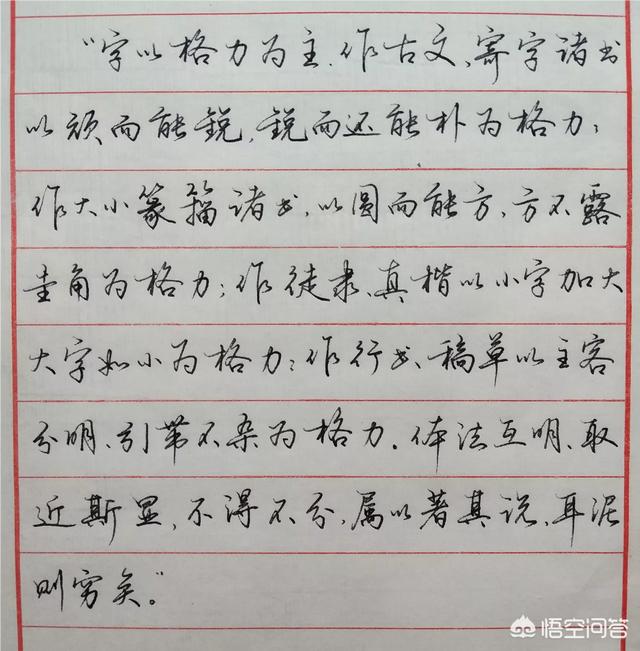 "字以格力为主.作古文、寄字诸书
以顽而能锐,锐而还能朴为格力;
作大小篆籀诸书,以圆而能方、方不露
圭角为格力;作徒隶、真楷以小字加大
大字如小为格力;作行书、稿草以主客
分明、引带不杂为格力.体法互明、取
近斯显,不得不分,属以著其说,耳泥
则穷矣。"
悟空问答